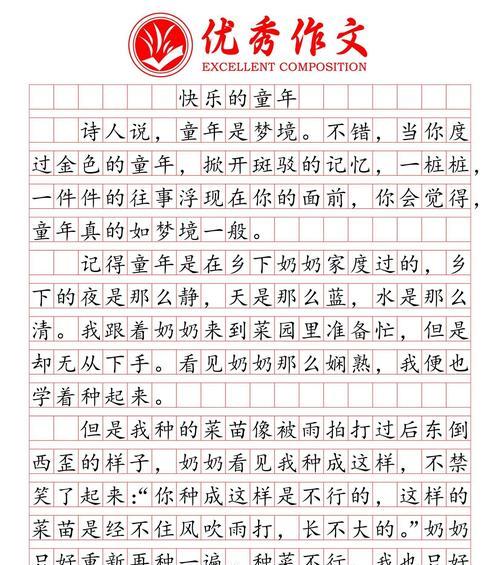 优秀作文
EXCELLENT COMPOSITION
快乐的童年
诗人说，童年是梦境。不错，当你度
过金色的童年，掀开斑驳的记忆，一桩桩，
一件件的往事浮现在你的面前，你会觉得，
童年真的如梦境一般。
记得童年是在乡下奶奶家度过的，乡
下的夜是那么静，天是那么蓝，水是那么
清。我跟着奶奶来到菜园里准备忙，但是
却无从下手。看见奶奶那么娴熟，我便也
学着种起来。
但是我种的菜苗像被雨拍打过后东倒
西歪的样子，奶奶看见我种成这样，不禁
笑了起来:“你种成这样是不行的，这样的
菜苗是经不住风吹雨打，长不大的。”奶奶
只好重新再种一遍，种菜不行，我也只好